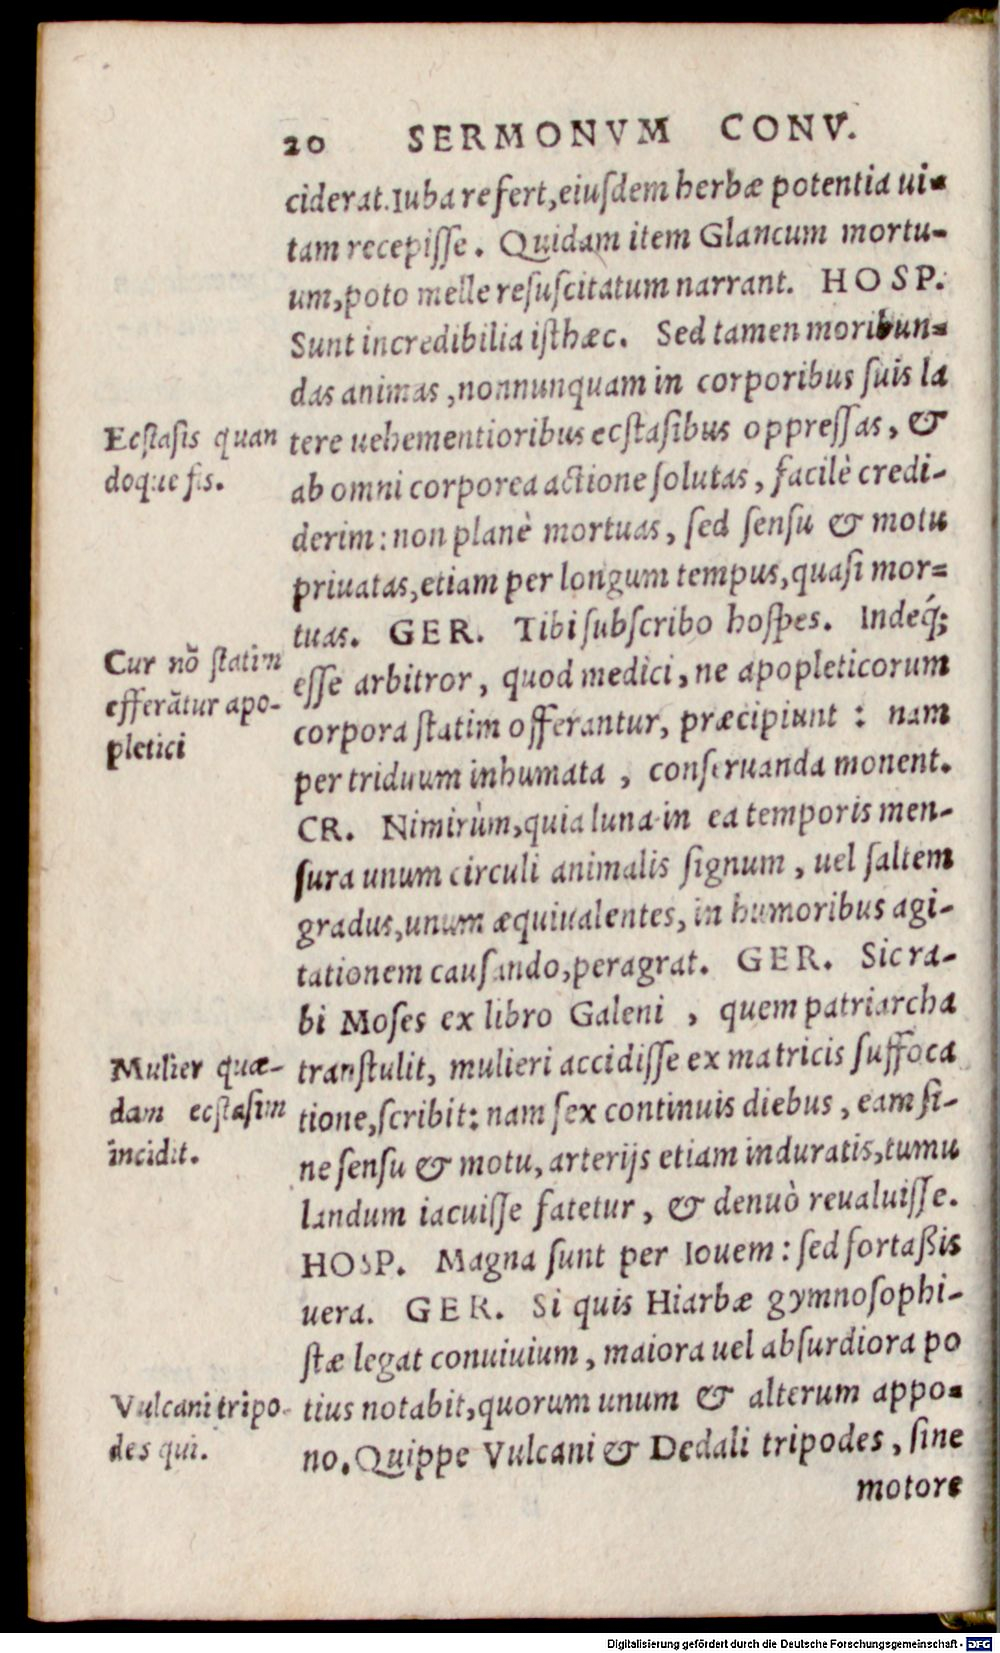 20 SERMONVM CONV.
ciderat. Iuba refert, eiusdem herbæ potentia ui-
tam recepisse. Quidam item Glancum mortu-
um, poto melle resuscitatum narrant. HOSP.
Sunt incredibilia isthæc. Sed tamen moribun-
das animas, nonnunquam in corporibus suis la
Ecstasis quan
doque fis.
tere uehementioribus ecstasibus oppressas, &
ab omni corporea actione solutas, facilè credi-
derim: non planè mortuas, sed sensu & motu
priuatas, etiam per longum tempus, quasi mor-
tuas. GER. Tibi subscribo hospes. Indeq́;
Cur nõ statim
efferãtur apo-
pletici
esse arbitror, quod medici, ne apopleticorum
corpora statim offerantur, præcipiunt: nam
per triduum inhumata, conseruanda monent.
CR. Nimirùm, quia luna in ea temporis men-
sura unum circuli animalis signum, uel saltem
gradus, unum æquiualentes, in humoribus agi-
tationem causando, peragrat. GER. Sic ra-
bi Moses ex libro Galeni, quem patriarcha
Mulier quæ-
dam ecstasim
incidit.
transtulit, mulieri accidisse ex matricis suffoca
tione, scribit: nam sex continuis diebus, eam si-
ne sensu & motu, arterijs etiam induratis, tumu
landum iacuisse fatetur, & denuò reualuisse.
HOSP. Magna sunt per Iouem: sed fortaßis
uera. GER. Si quis Hiarbæ gymnosophi-
stæ legat conuiuium, maiora uel absurdiora po
Vulcani tripo-
des qui.
tius notabit, quorum unum & alterum appo-
no. Quippe Vulcani & Dedali tripodes, sine
motore
Digitalisierung gefördert durch die Deutsche Forschungsgemeinschaft - DFG